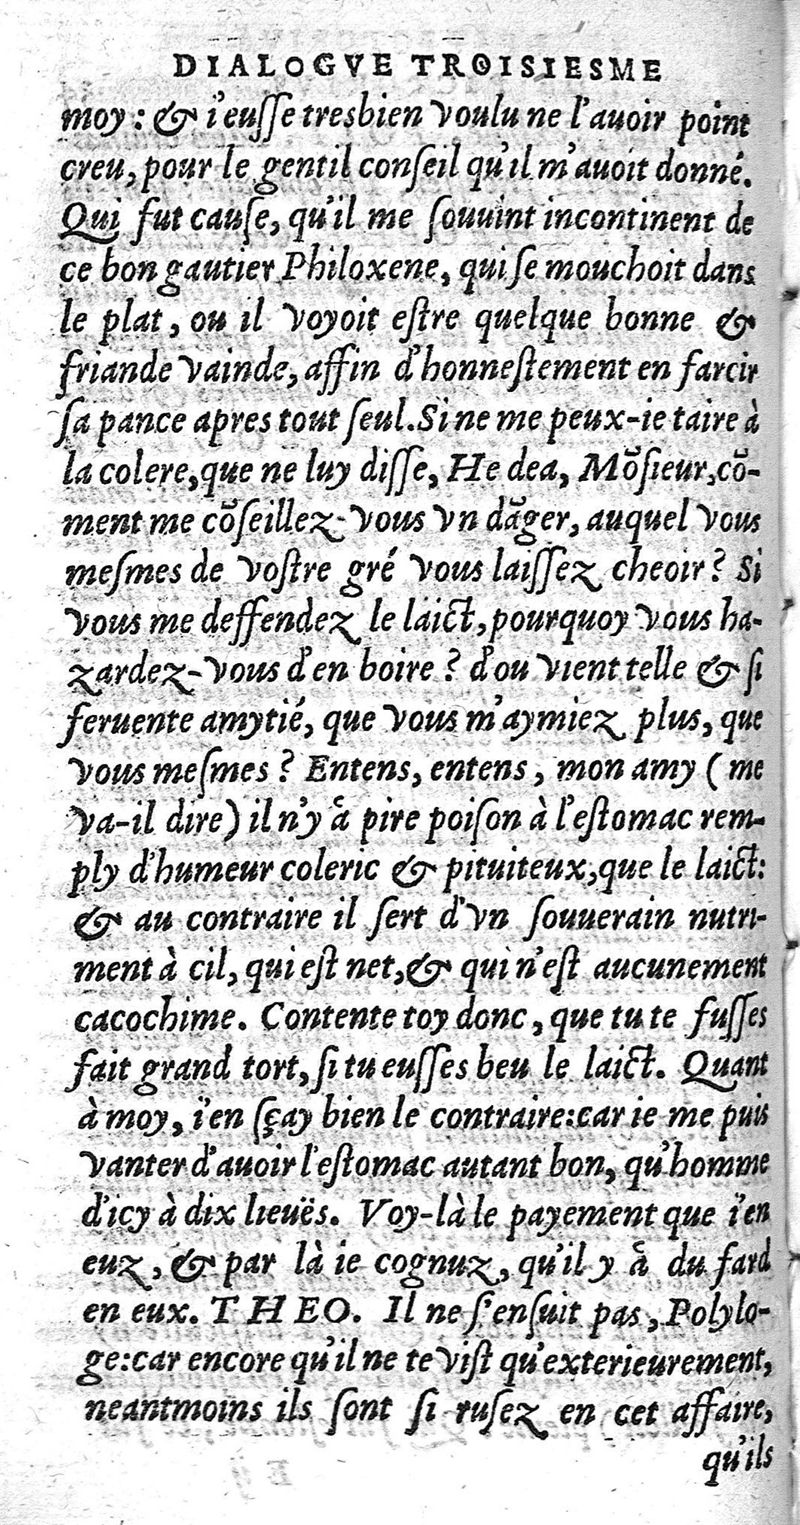 DIALOGVE TROISIESME
moy : & i'eusse tresbien voulu ne l'auoir point
creu, pour le gentil conseil qu'il m'auoit donné.
Qui fut cause, qu'il me souuint incontinent de
ce bon gautier Philoxene, qui se mouchoit dans
le plat, ou il voyoit estre quelque bonne &
friande vainde, affin d'honnestement en farcir
sa pance apres tout seul. Si ne me peux-ie taire à
la colere, que ne luy disse, He dea, Mõsieur, cõ-
ment me cõseillez-vous vn dãger, auquel vous
mesmes de vostre gré vous laissez cheoir ? Si
vous me deffendez le laict, pourquoy vous ha-
zardez-vous d'en boire ? d'ou vient telle & si
feruente amytié, que vous m'aymiez plus, que
vous mesmes ? Entens, entens, mon amy ( me
va-il dire) il n'y å pire poison à l'estomac rem-
ply d'humeur coleric & pituiteux, que le laict:
& au contraire il sert d'vn souuerain nutri-
ment à cil, qui est net, & qui n'est aucunement
cacochime. Contente toy donc, que tu te fusses
fait grand tort, si tu eusses beu le laict. Quant
à moy, i'en sçay bien le contraire: car ie me puis
vanter d'auoir l'estomac autant bon, qu'homme
d'icy à dix lieuës. Voy-là le payement que i'en
euz, & par là ie cognuz, qu'il y å du fard
en eux. THEO. Il ne s'ensuit pas, Polylo-
ge: car encore qu'il ne te vist qu'exterieurement,
neantmoins ils sont si rusez en cet affaire,
qu'ils